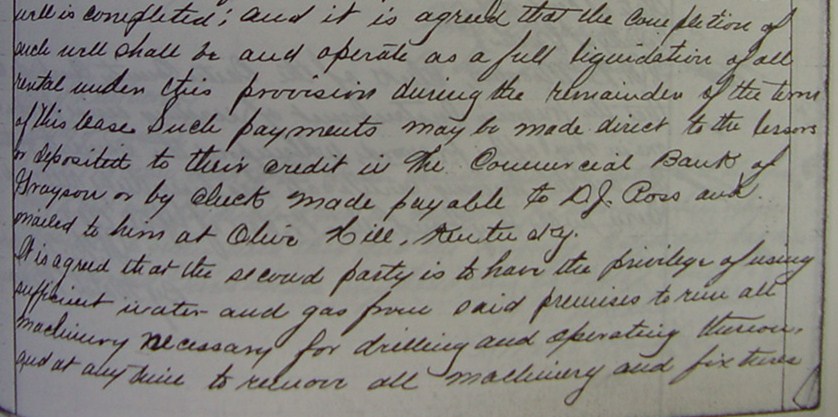 well is completed; and it is agreed that the completion of
such well shall be and operate as a full liquidation of all
rental under this provision during the remainder of the term
of this lease. Such payments may be made direct to the lessors
or deposited to their credit in The Commercial Bank of
Grayson or by check made payable to D.J. Ross and
mailed to him at Olive Hill, Kentucky.
It is agreed that the second party is to have the privilege of using
sufficient water and gas from said premises to run all
machinery necessary for drilling and operating thereon,
and at any time to remove all machinery and fixtures